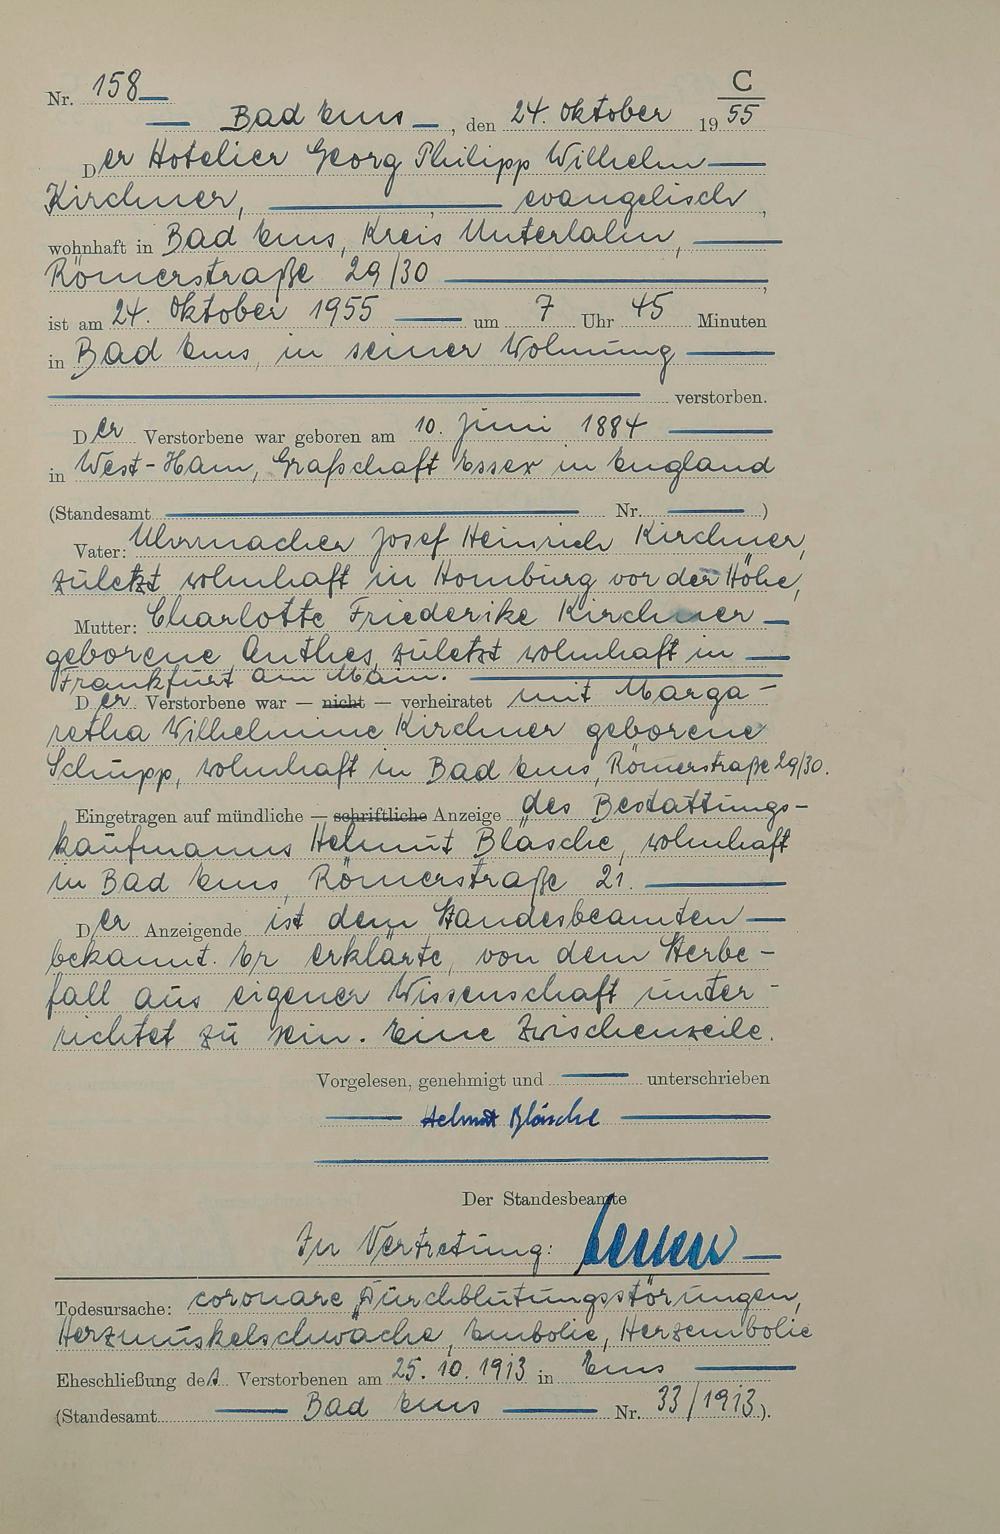 C
Nr. 158
Bad Ems, den 24. Oktober 19 55
Der Hotelier Georg Philipp Wilhelm
Kirchner, evangelisch,
wohnhaft in Bad Ems, Kreis Unterlahn,
Römerstraße 29/30,
ist am 24. Oktober 1955 um 7 Uhr 45 Minuten
in Bad Ems, in seiner Wohnung
verstorben.
Der Verstorbene war geboren am 10. Juni 1884
in West-Ham, Grafschaft Essex in England
(Standesamt Nr. )
Vater: Uhrmacher Josef Heinrich Kirchner,
zuletzt wohnhaft in Homburg vor der Höhe,
Mutter: Charlotte Friederike Kirchner
geborene Anthes, zuletzt wohnhaft in
Frankfurt am Main.
Der Verstorbene war — nicht — verheiratet mit Marga-
retha Wilhelmine Kirchner geborene
Schupp, wohnhaft in Bad Ems, Römerstraße 29/30.
Eingetragen auf mündliche — schriftliche Anzeige des Bestattungs-
kaufmanns Helmut Bläsche, wohnhaft
in Bad Ems, Römerstraße 21.
Der Anzeigende ist dem Standesbeamten
bekannt. Er erklärte, von dem Sterbe-
fall aus eigener Wissenschaft unter-
richtet zu sein. Eine Zwischenzeile.
Vorgelesen, genehmigt und unterschrieben
Helmut Bläsche
Der Standesbeamte
In Vertretung:
Todesursache: coronare Durchblutungsstörungen,
Herzmuskelschwäche, Embolie, Herzembolie
Eheschließung des Verstorbenen am 25. 10. 1913 in Ems
(Standesamt Bad Ems Nr. 33/1913).